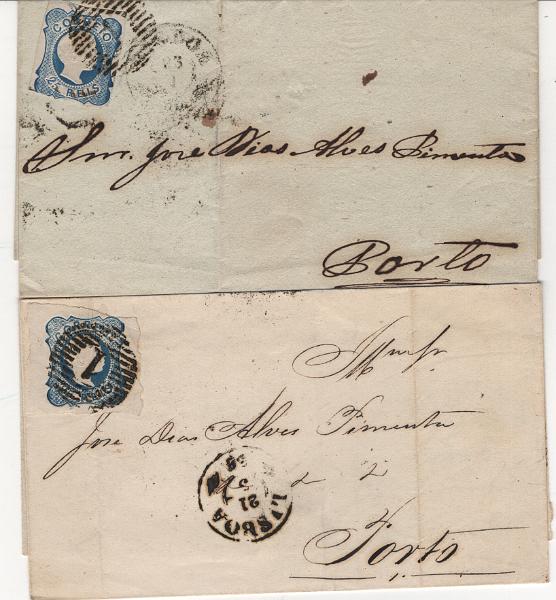 CORREIO
25 REIS
Snr. Jose Dias Alves Pimenta
Porto
1
REIS
Jose Dias Alves Pimenta
LISBOA
21
Porto